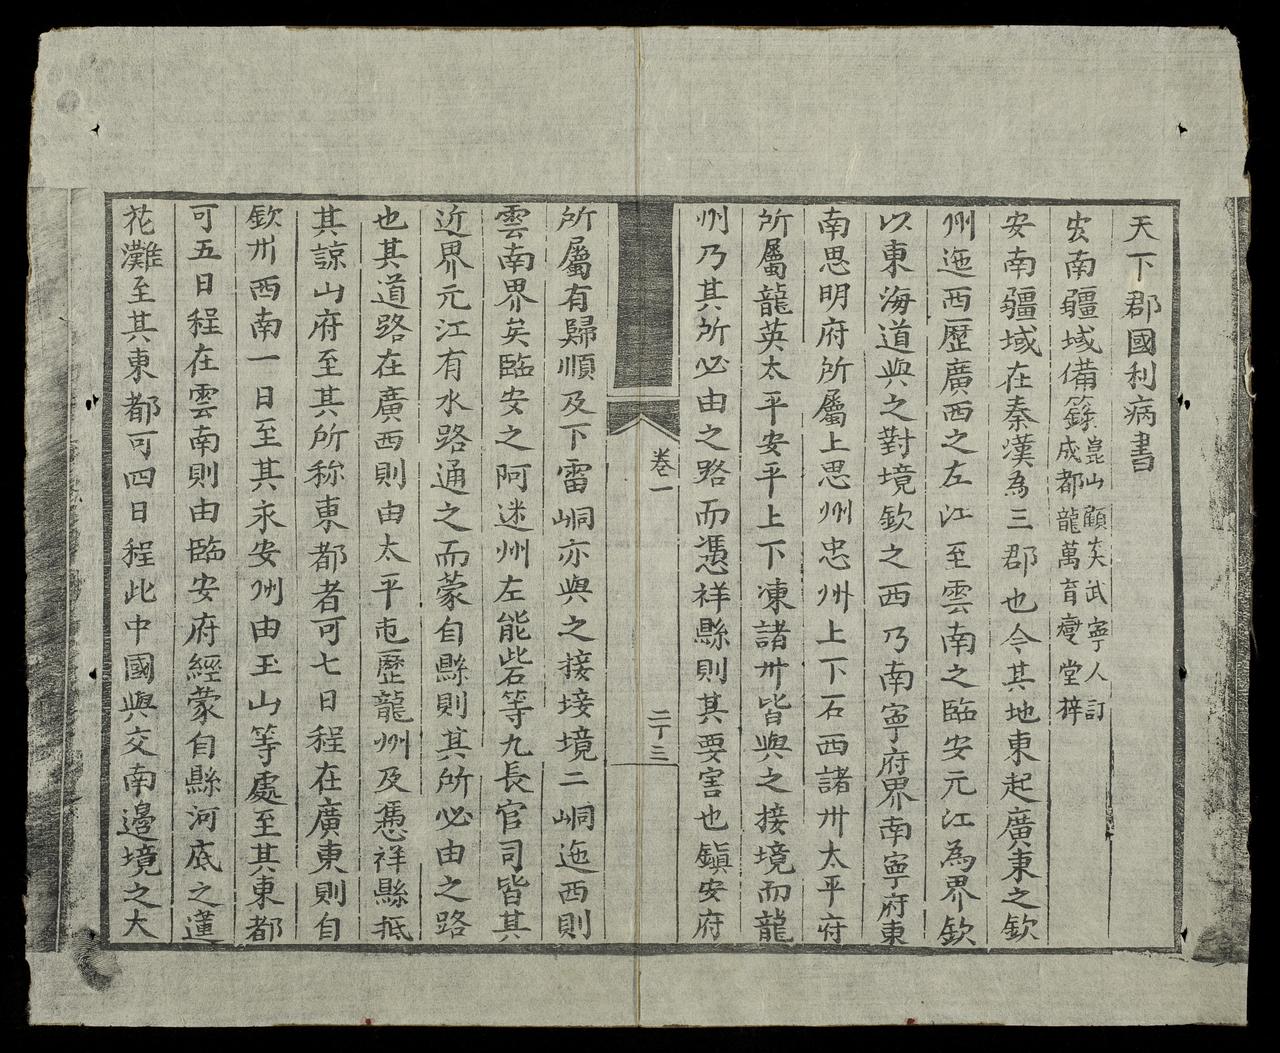 天下郡國利病書
安南疆域備錄崑山顧炎武寧人訂
成都龍萬育燮堂梓
安南疆域在秦漢為三郡也今其地東起廣東之欽
州迤西歷廣西之左江至雲南之臨安元江為界欽
以東海道與之對境欽之西乃南寧府界南寧府東
南思明府所屬上思州忠州上下石西諸州太平府
所屬龍英太平安平上下凍諸州皆與之接境而龍
州乃其所必由之路而憑祥縣則其要害也鎮安府
卷一
二十三
所屬有歸順及下雷峒亦與之接境二峒迤西則
雲南界矣臨安之阿迷州左能砦等九長官司皆其
近界元江有水路通之而蒙自縣則其所必由之路
也其道路在廣西則由太平府歷龍州及憑祥縣抵
其諒山府至其所称東都者可七日程在廣東則自
欽州西南一日至其永安州由玉山等處至其東都
可五日程在雲南則由臨安府經蒙自縣河底之蓮
花灘至其東都可四日程此中國與交南邊境之大